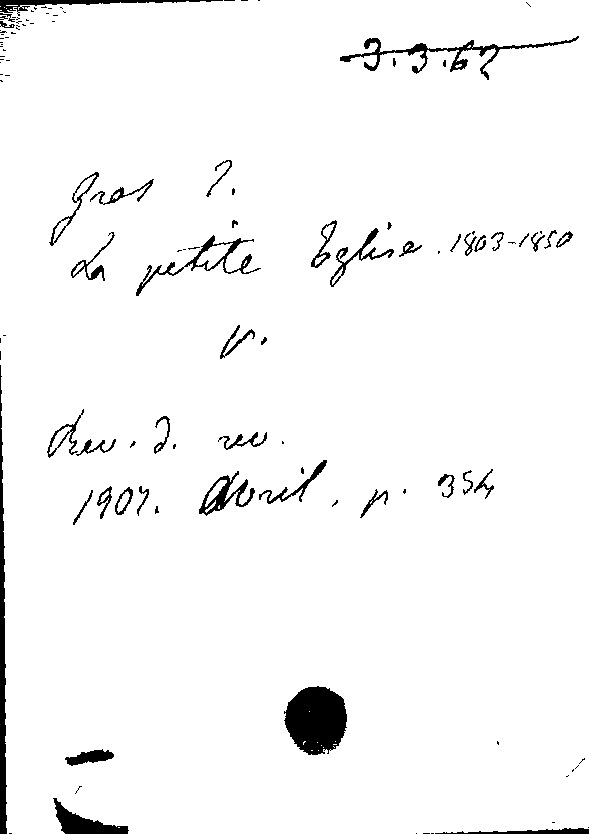 3.3.62
Gros ?.
La petite Eglise. 1803-1850
v.
Rev. d. rev.
1907. Avril, p. 354